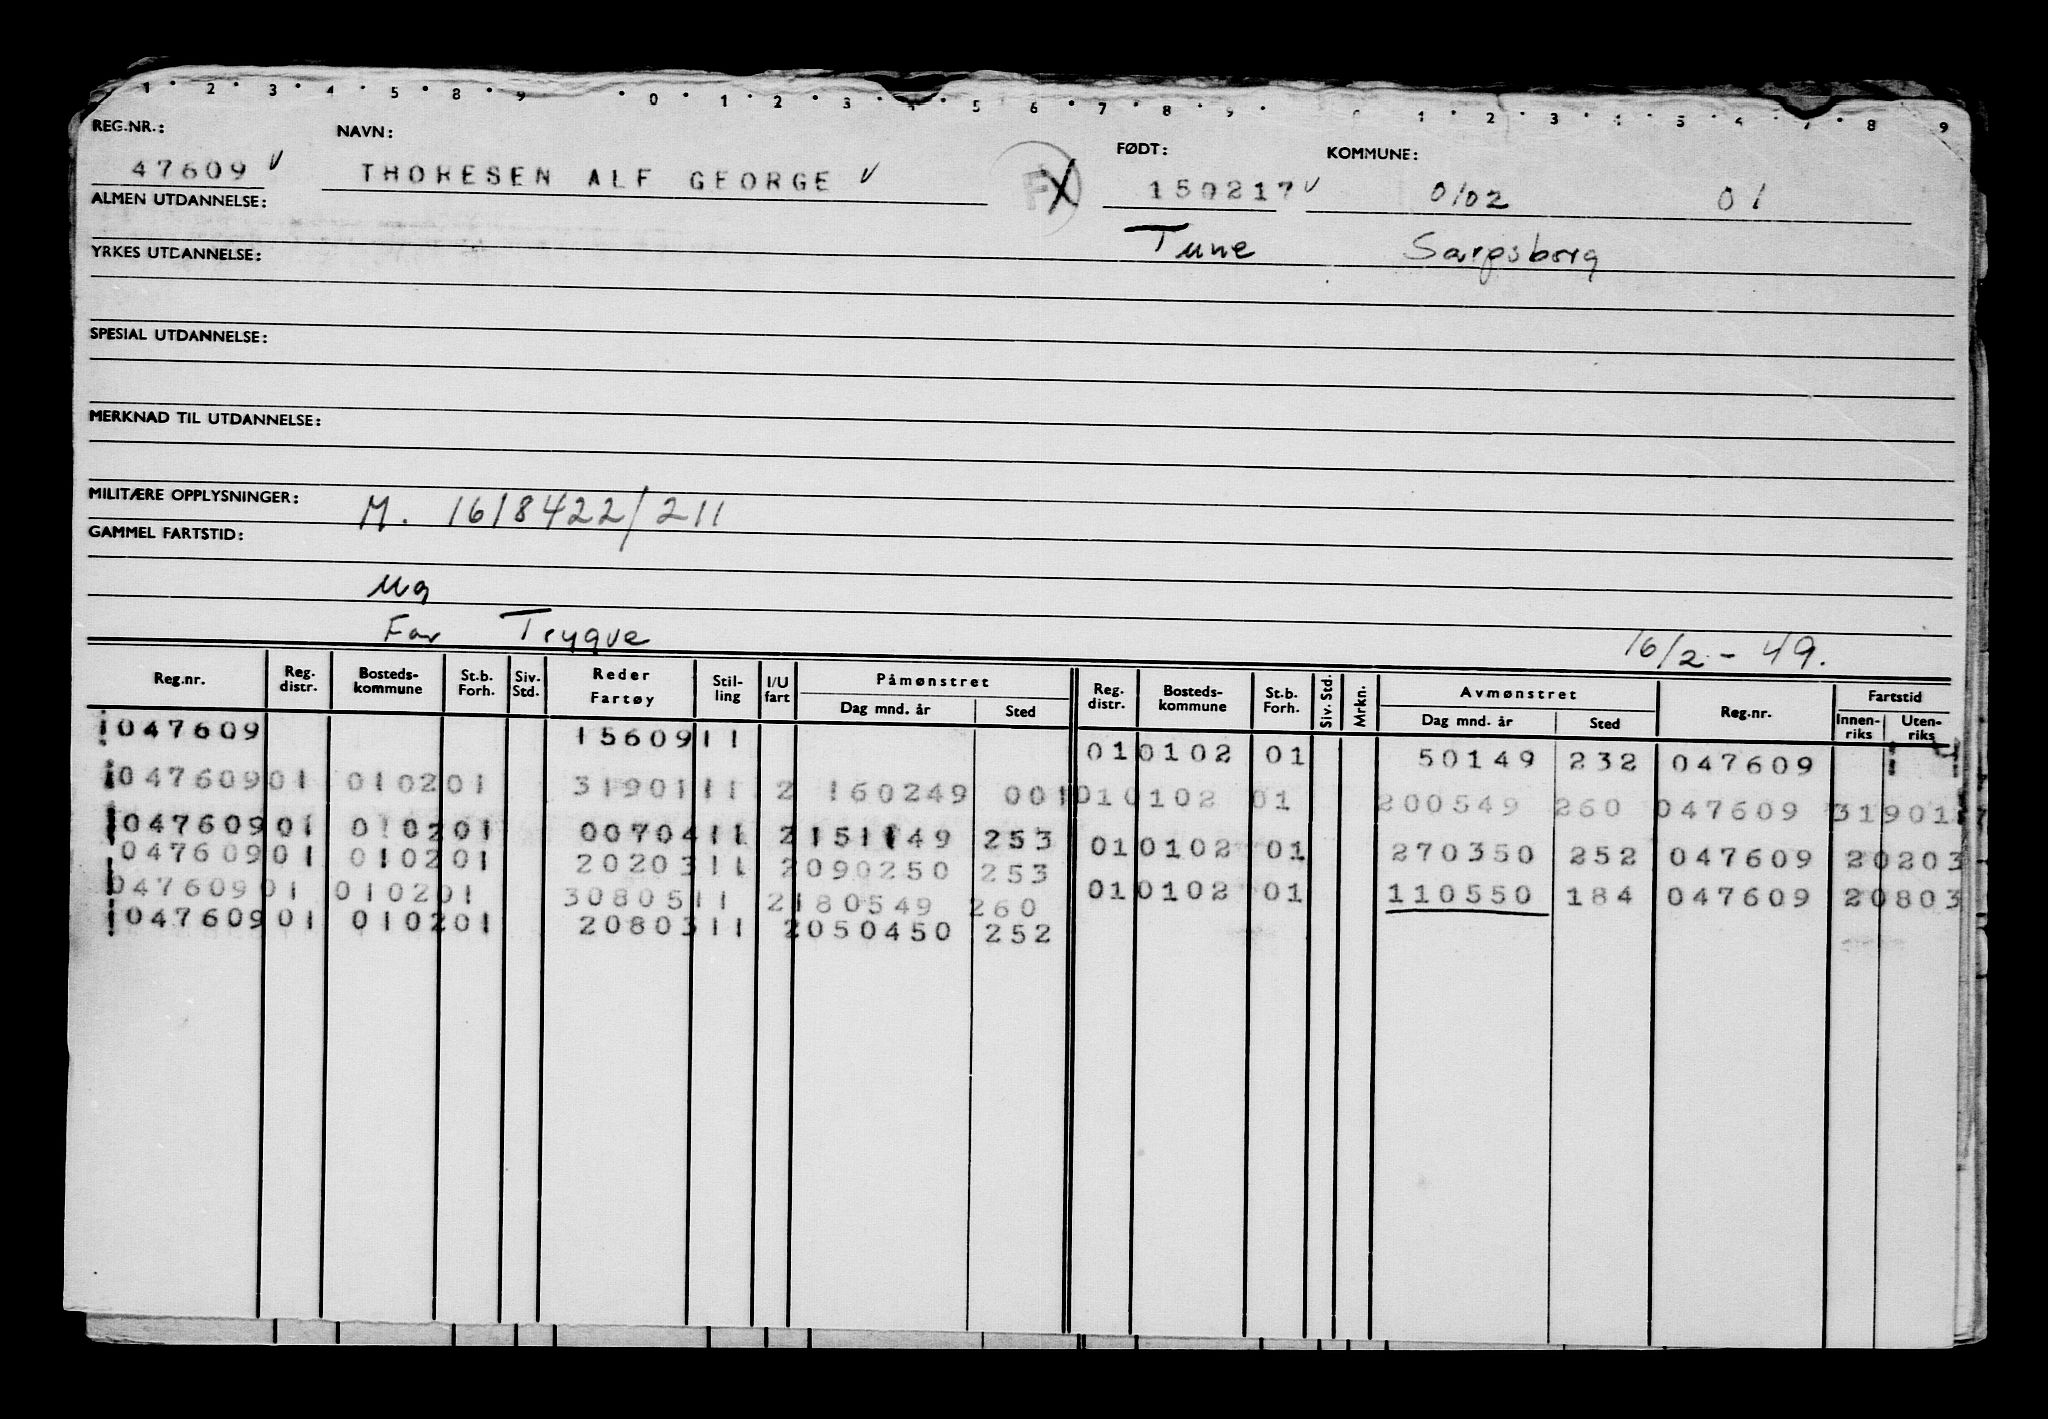 1 2 3 4 5 8 9 0 1 2 3 4 5 6 7 8 9 1 2 3 4 5 4 7 8 9
REG.NR.: NAVN: FØDT: KOMMUNE:
47609 THORESEN ALF GEORGE 150217 0102 01
ALMEN UTDANNELSE:
Tune Sarpsborg
YRKES UTDANNELSE:
SPESIAL UTDANNELSE:
MERKNAD TIL UTDANNELSE:
MILITÆRE OPPLYSNINGER: M. 1618422/211
GAMMEL FARTSTID:
Ug
Far Trygve 16/2-49.
Reg.nr. Reg. distr. Bosteds- kommune St.b. Forh. Siv- Std. Reder Fartøy Stil- ling I/U fart Påmønstret Dag mnd. år Sted Reg. distr. Bosteds- kommune St.b. Forh. Siv. Std. Mrkn. Avmønstret Dag mnd. år Sted Reg.nr. Fartstid Innen- riks Uten- riks
047609 15609 11 01 0102 01 50149 232 047609
047609 01 0102 01 31901 11 2 160249 001 01 0102 01 200549 260 047609 31901
047609 01 0102 01 00704 11 2 151149 253 01 0102 01 270350 252 047609 20203
047609 01 0102 01 20203 11 2 090250 253 01 0102 01 110550 184 047609 20803
047609 01 0102 01 30805 11 2 180549 260
047609 01 0102 01 20803 11 2 050450 252